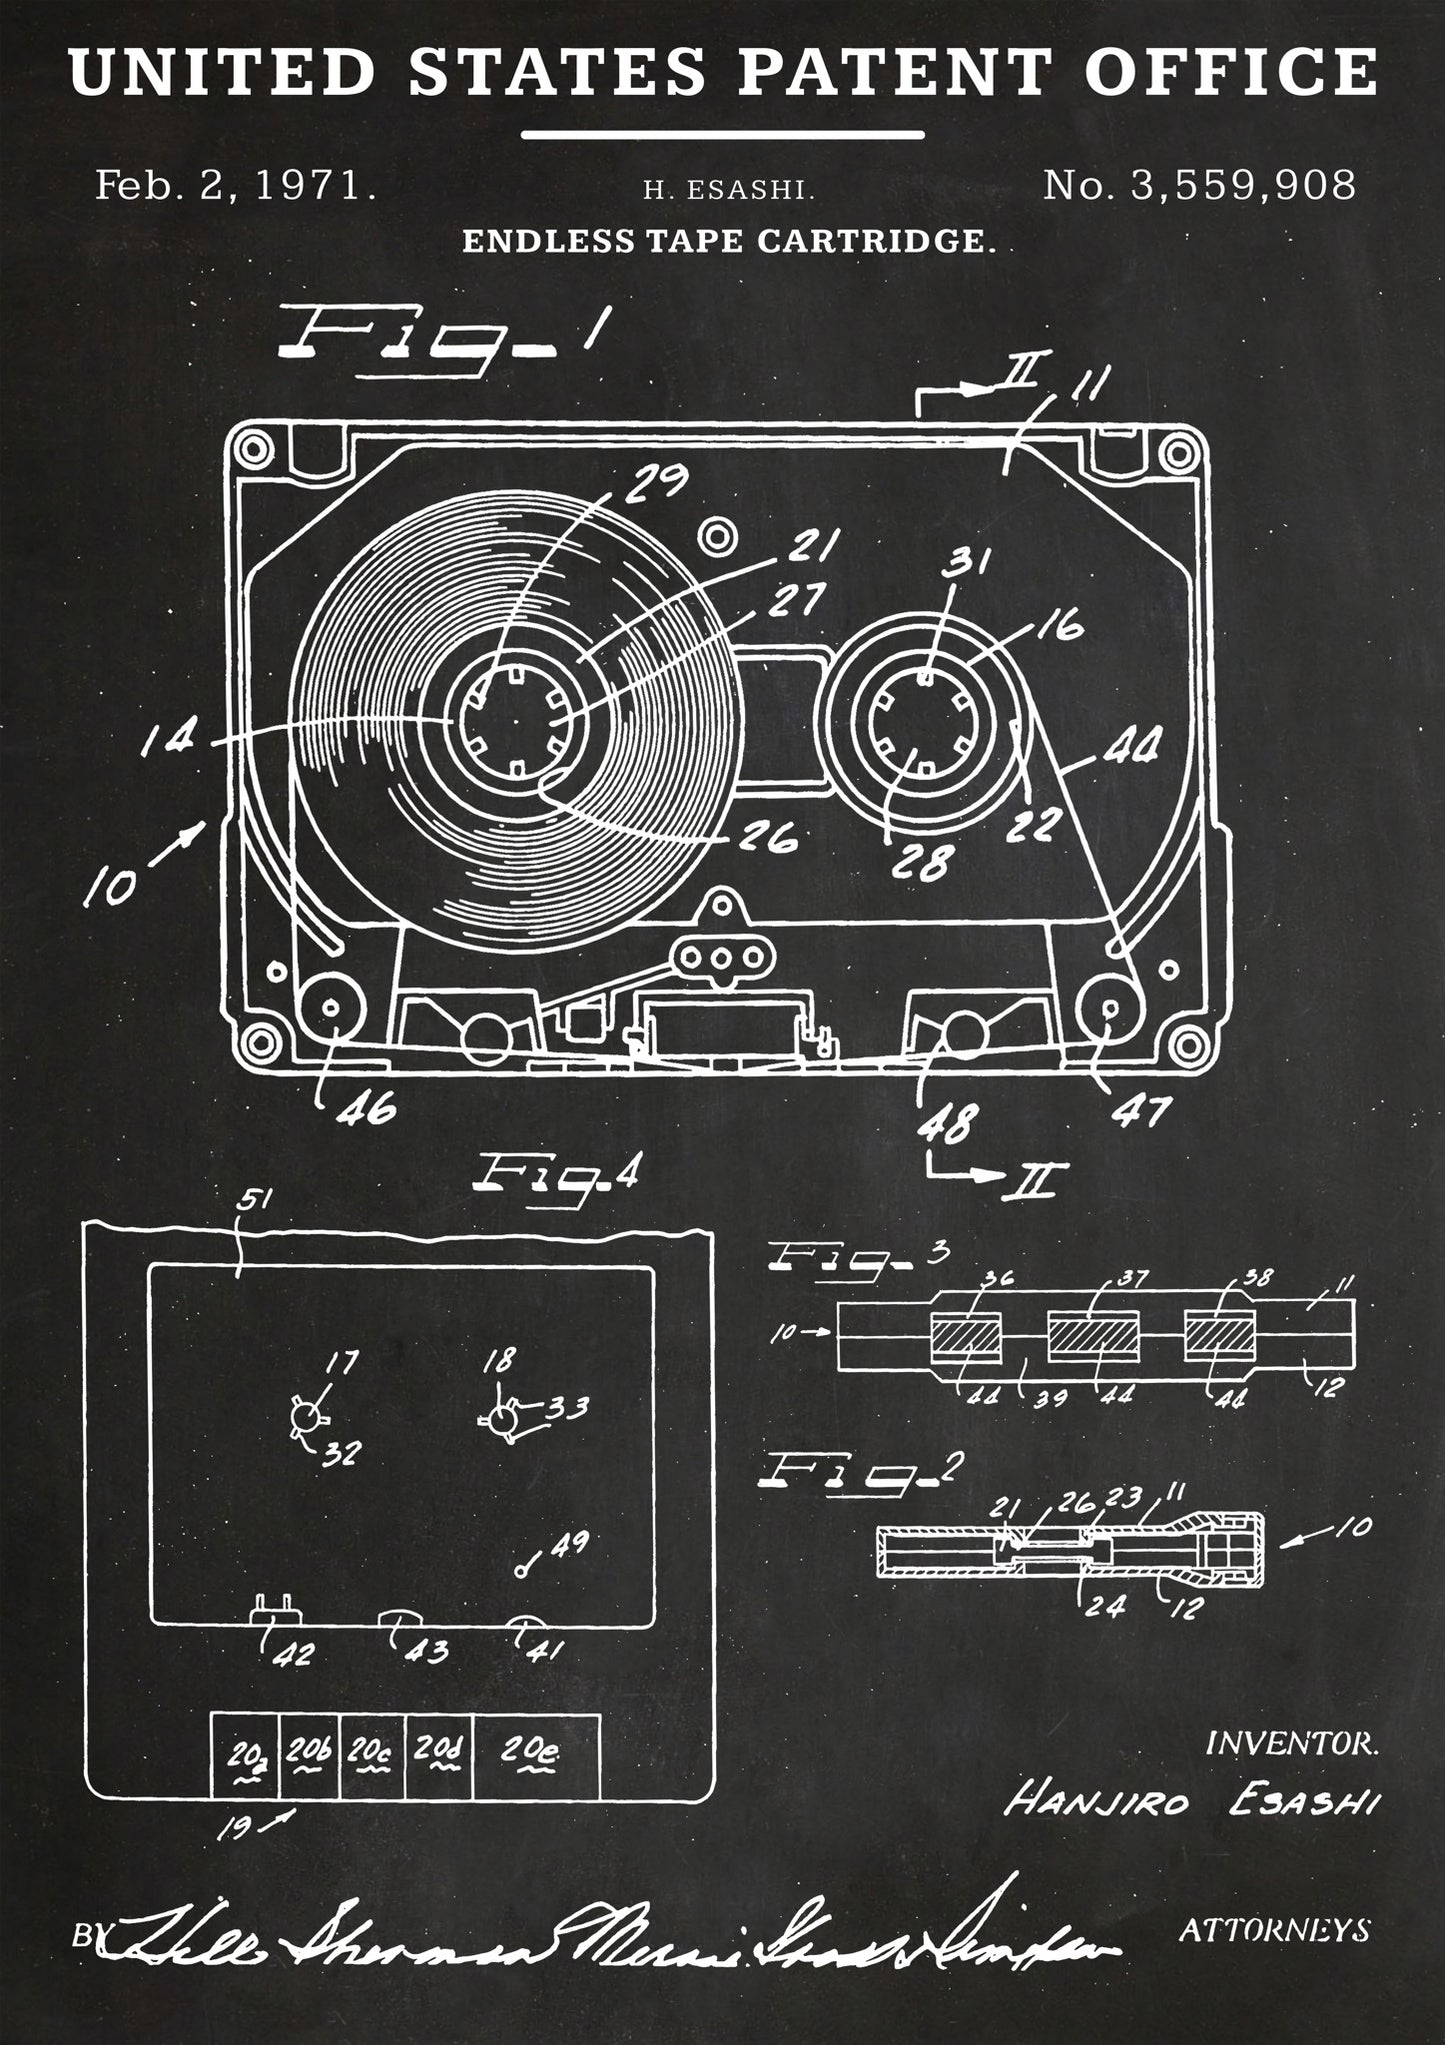 UNITED STATES PATENT OFFICE
Feb. 2, 1971. H. ESASHI. No. 3,559,908
ENDLESS TAPE CARTRIDGE.
Fig_1
II
11
29
21
31
27
16
14
44
26
22
28
10
46
48
47
II
Fig.4
51
Fig_3
36 37 38 11
10
44 39 44 44 12
17 18
33
32
Fig_2
21 26 23 11
10
49
24 12
42 43 41
20a 20b 20c 20d 20e
19
INVENTOR.
HANJIRO ESASHI
BY Hill Sherman ATTORNEYS